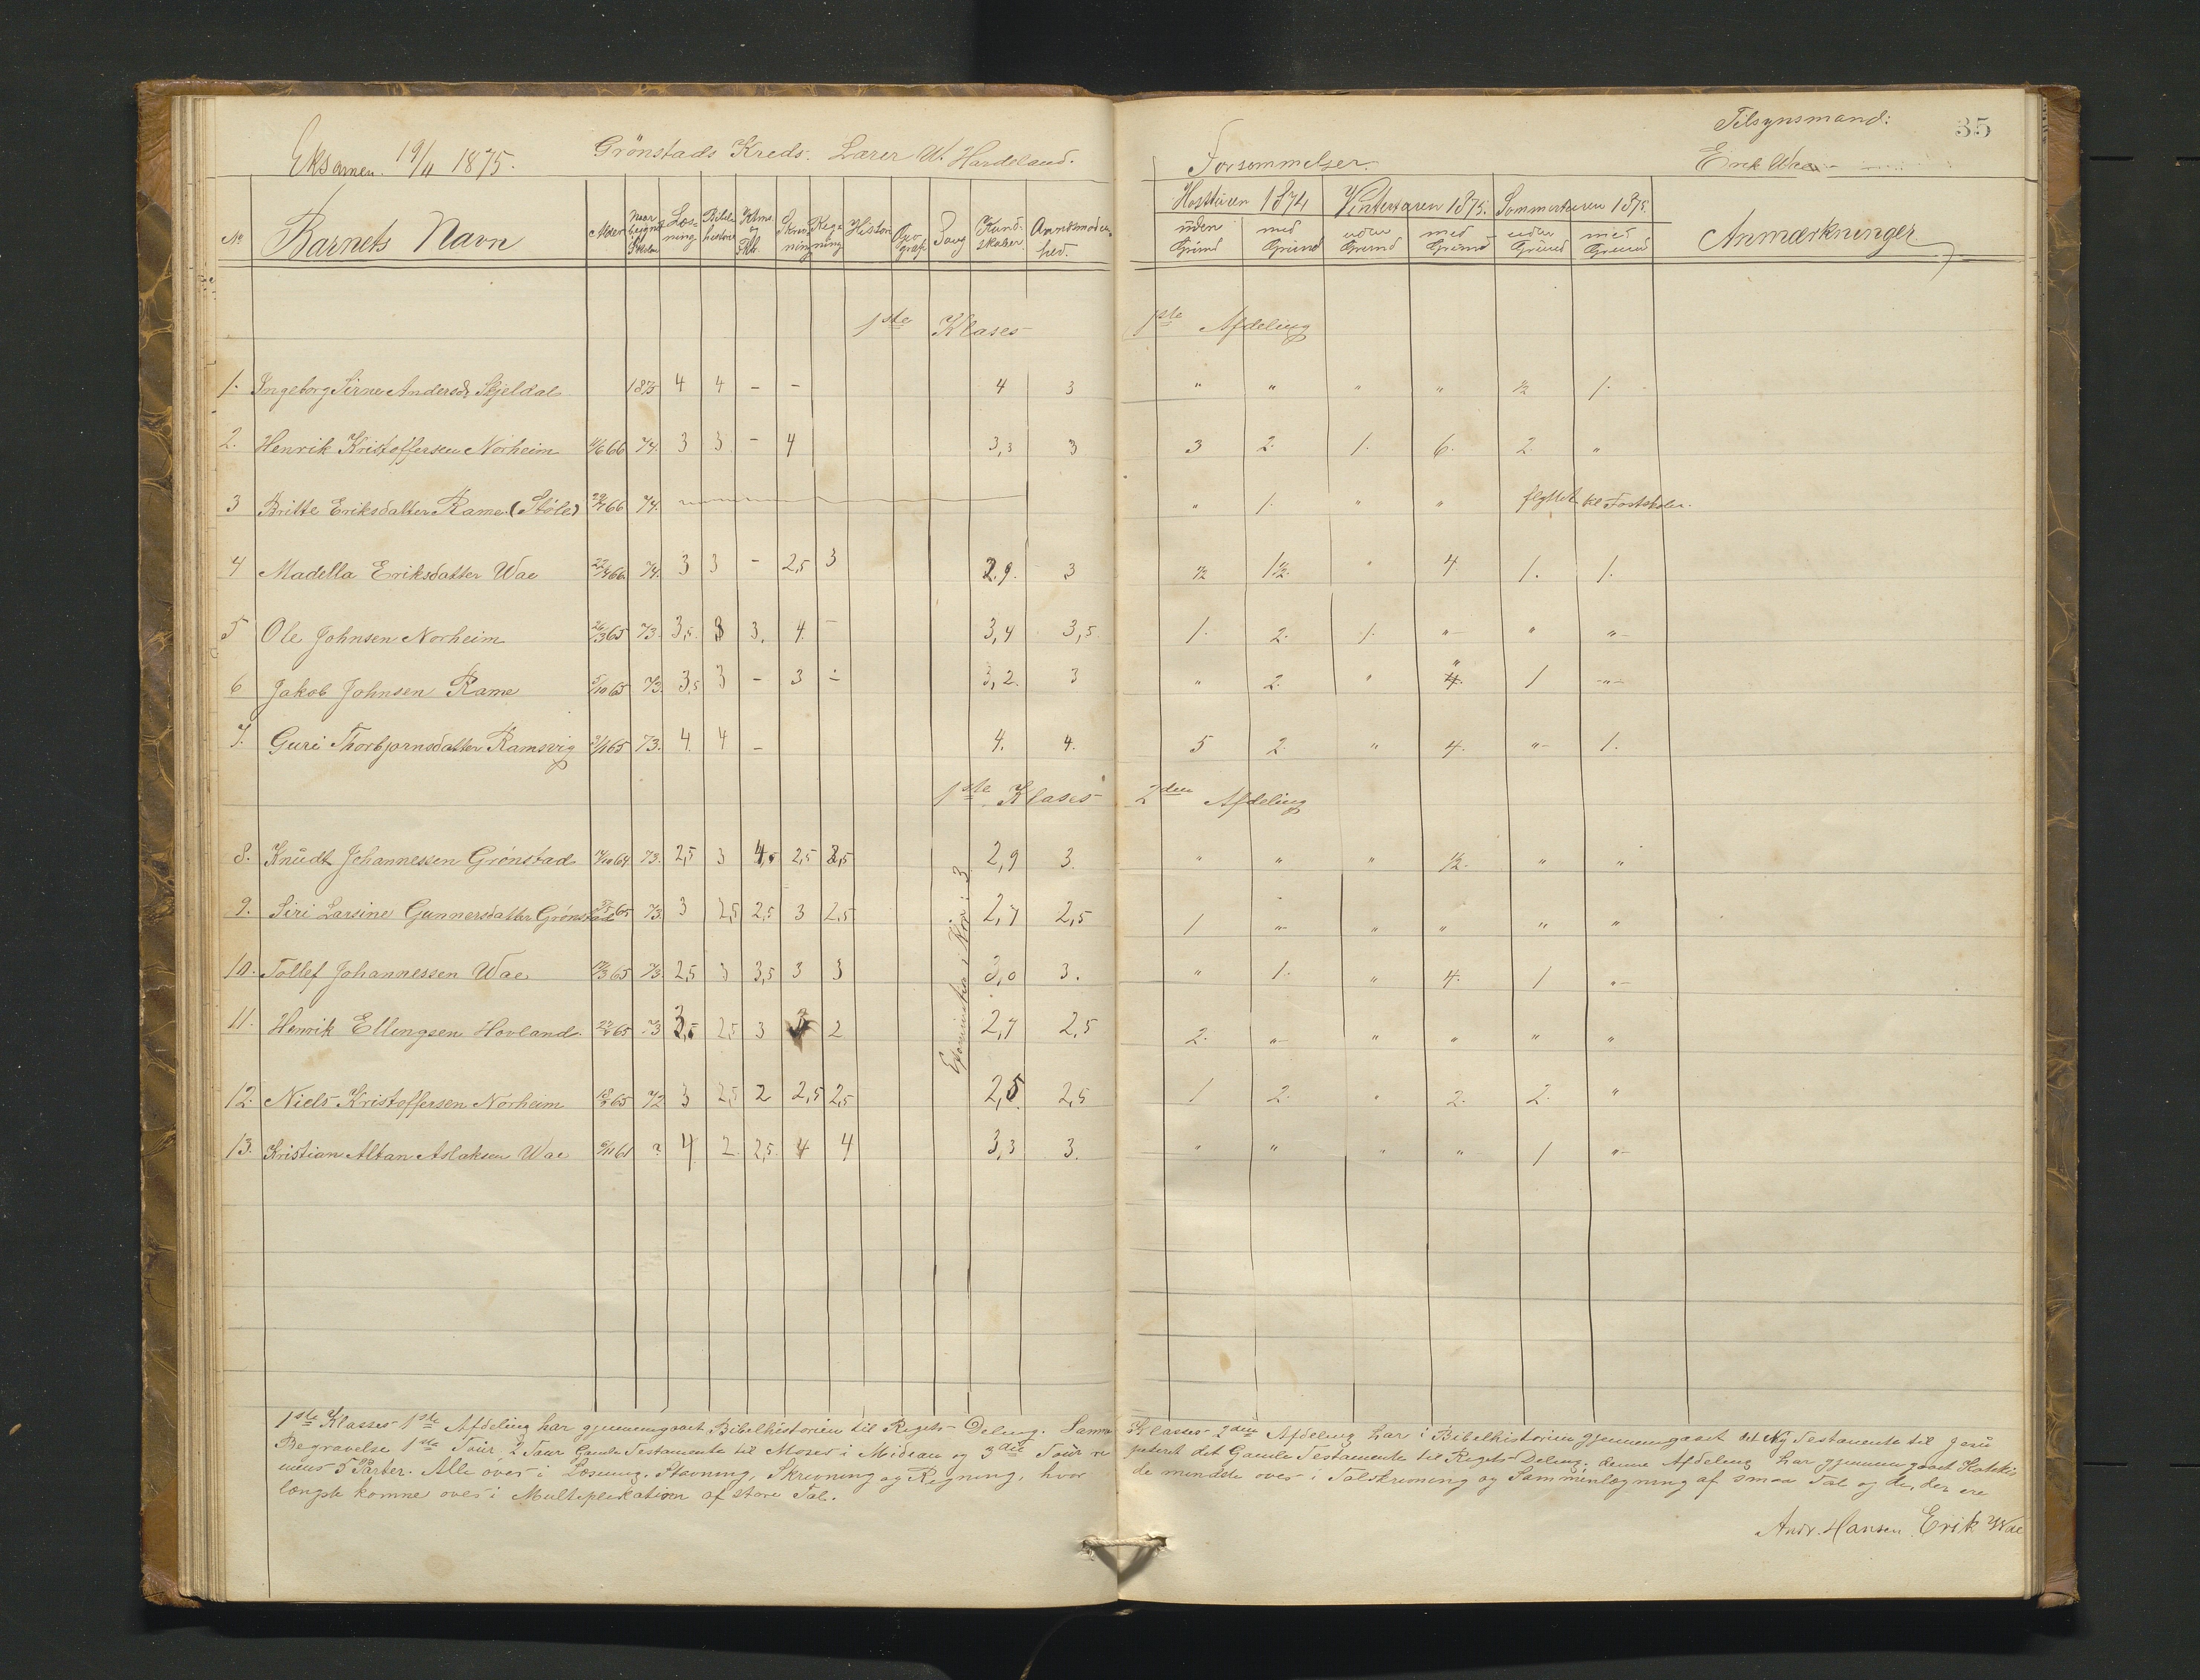 Eksamen 19/11 1875. Grönstads Kreds. Lærer W. Hardeland.
Forsömmelser.
Tilsynsmand: 35
Erik Wae
No Barnets Navn Alder Naar beignt Skolen Læsning Bibelhistorie Ktms. og Fkl. Skrivning Regning Histori Geograf Sang Kundskaber Anvndsmodenhed.
Hostturen 1874 Vinterturen 1875. Sommerturen 1875. Anmærkninger
uden Grund med Grund uden Grund med Grund uden Grund med Grund
1ste Klases 1ste Afdeling
1. Ingeborg Sirine Andersdr Skjeldal 1875 4 4 - - 4 3 " " " " ½ 1.
2. Henrik Kristoffersen Norheim 11/6 66 74. 3 3 - 4 3,3 3 3 2. 1. 6. 2. "
3 Britte Eriksdatter Rame (Støle) 66 74. " 1. " " flyttet til Fastskolen.
4 Madella Eriksdatter Wae 22/4 66 74. 3 3 - 2,5 3 2.9. 3 ½ 1½. " 4 1. 1.
5 Ole Johnsen Norheim 26/3 65 73. 3,5. 3 3. 4. - 3,4 3,5. 1. 2. 1. " " "
6 Jakob Johnsen Rame 5/10 65 73. 3,5 3 - 3 - 3,2. 3 " 2. " " 1 "
7. Guri Thorbjørnsdatter Ramsvig 65 73. 4. 4 - 4. 4. 5 2. " 4. " 1.
1ste Klases 2den Afdeling
8. Knudt Johannessen Grönstad 64 73. 2,5 3 4,5 2,5 3,5 2,9 3. " " " ½. " "
9. Siri Larsine Gunnersdatter Grönstad 65 73. 3 2,5 2,5 3 2,5 2,7 2,5 1 " " " " "
10. Tollef Johannessen Wae 65 73. 2,5 3 3,5 3 3 3,0 3. " 1. " 4. 1 "
11. Henrik Ellingsen Hovland 65 73 3,5 2,5 3 2 2,7 2,5 2. " " " " "
12. Niels Kristoffersen Norheim 65 72 3 2,5 2 2,5 2,5 2,5 2,5 1 2. " 2. 2. "
13. Kristian Altan Aslaksen Wae 61 ? 4 2. 2,5. 4 4 3,3 3. " " " " 1 "
i Kor: 3
1ste Klasses 1ste Afdeling har gjennemgaaet Bibelhistorien til Rigets Deling. Samme Klasses 2den Afdeling har i Bibelhistorien gjennemgaaet det Ny Testamente til Jesu
Begravelse 1ste Tuur, 2 Tuur Gamle Testamente til Moses i Midian og 3die Tuur repeteret det Gamle Testamente til Rigets Deling; denne Afdeling har gjennemgaaet Katekis
mens 5 Parter. Alle över i Læsning, Stavning, Skrivning og Regning, hvor de mindste över i Talskrivning og Sammenlægning af smaa Tal og de, der ere
længst komne över i Multiplikation af store Tal.
Andr. Hansen Erik Wae